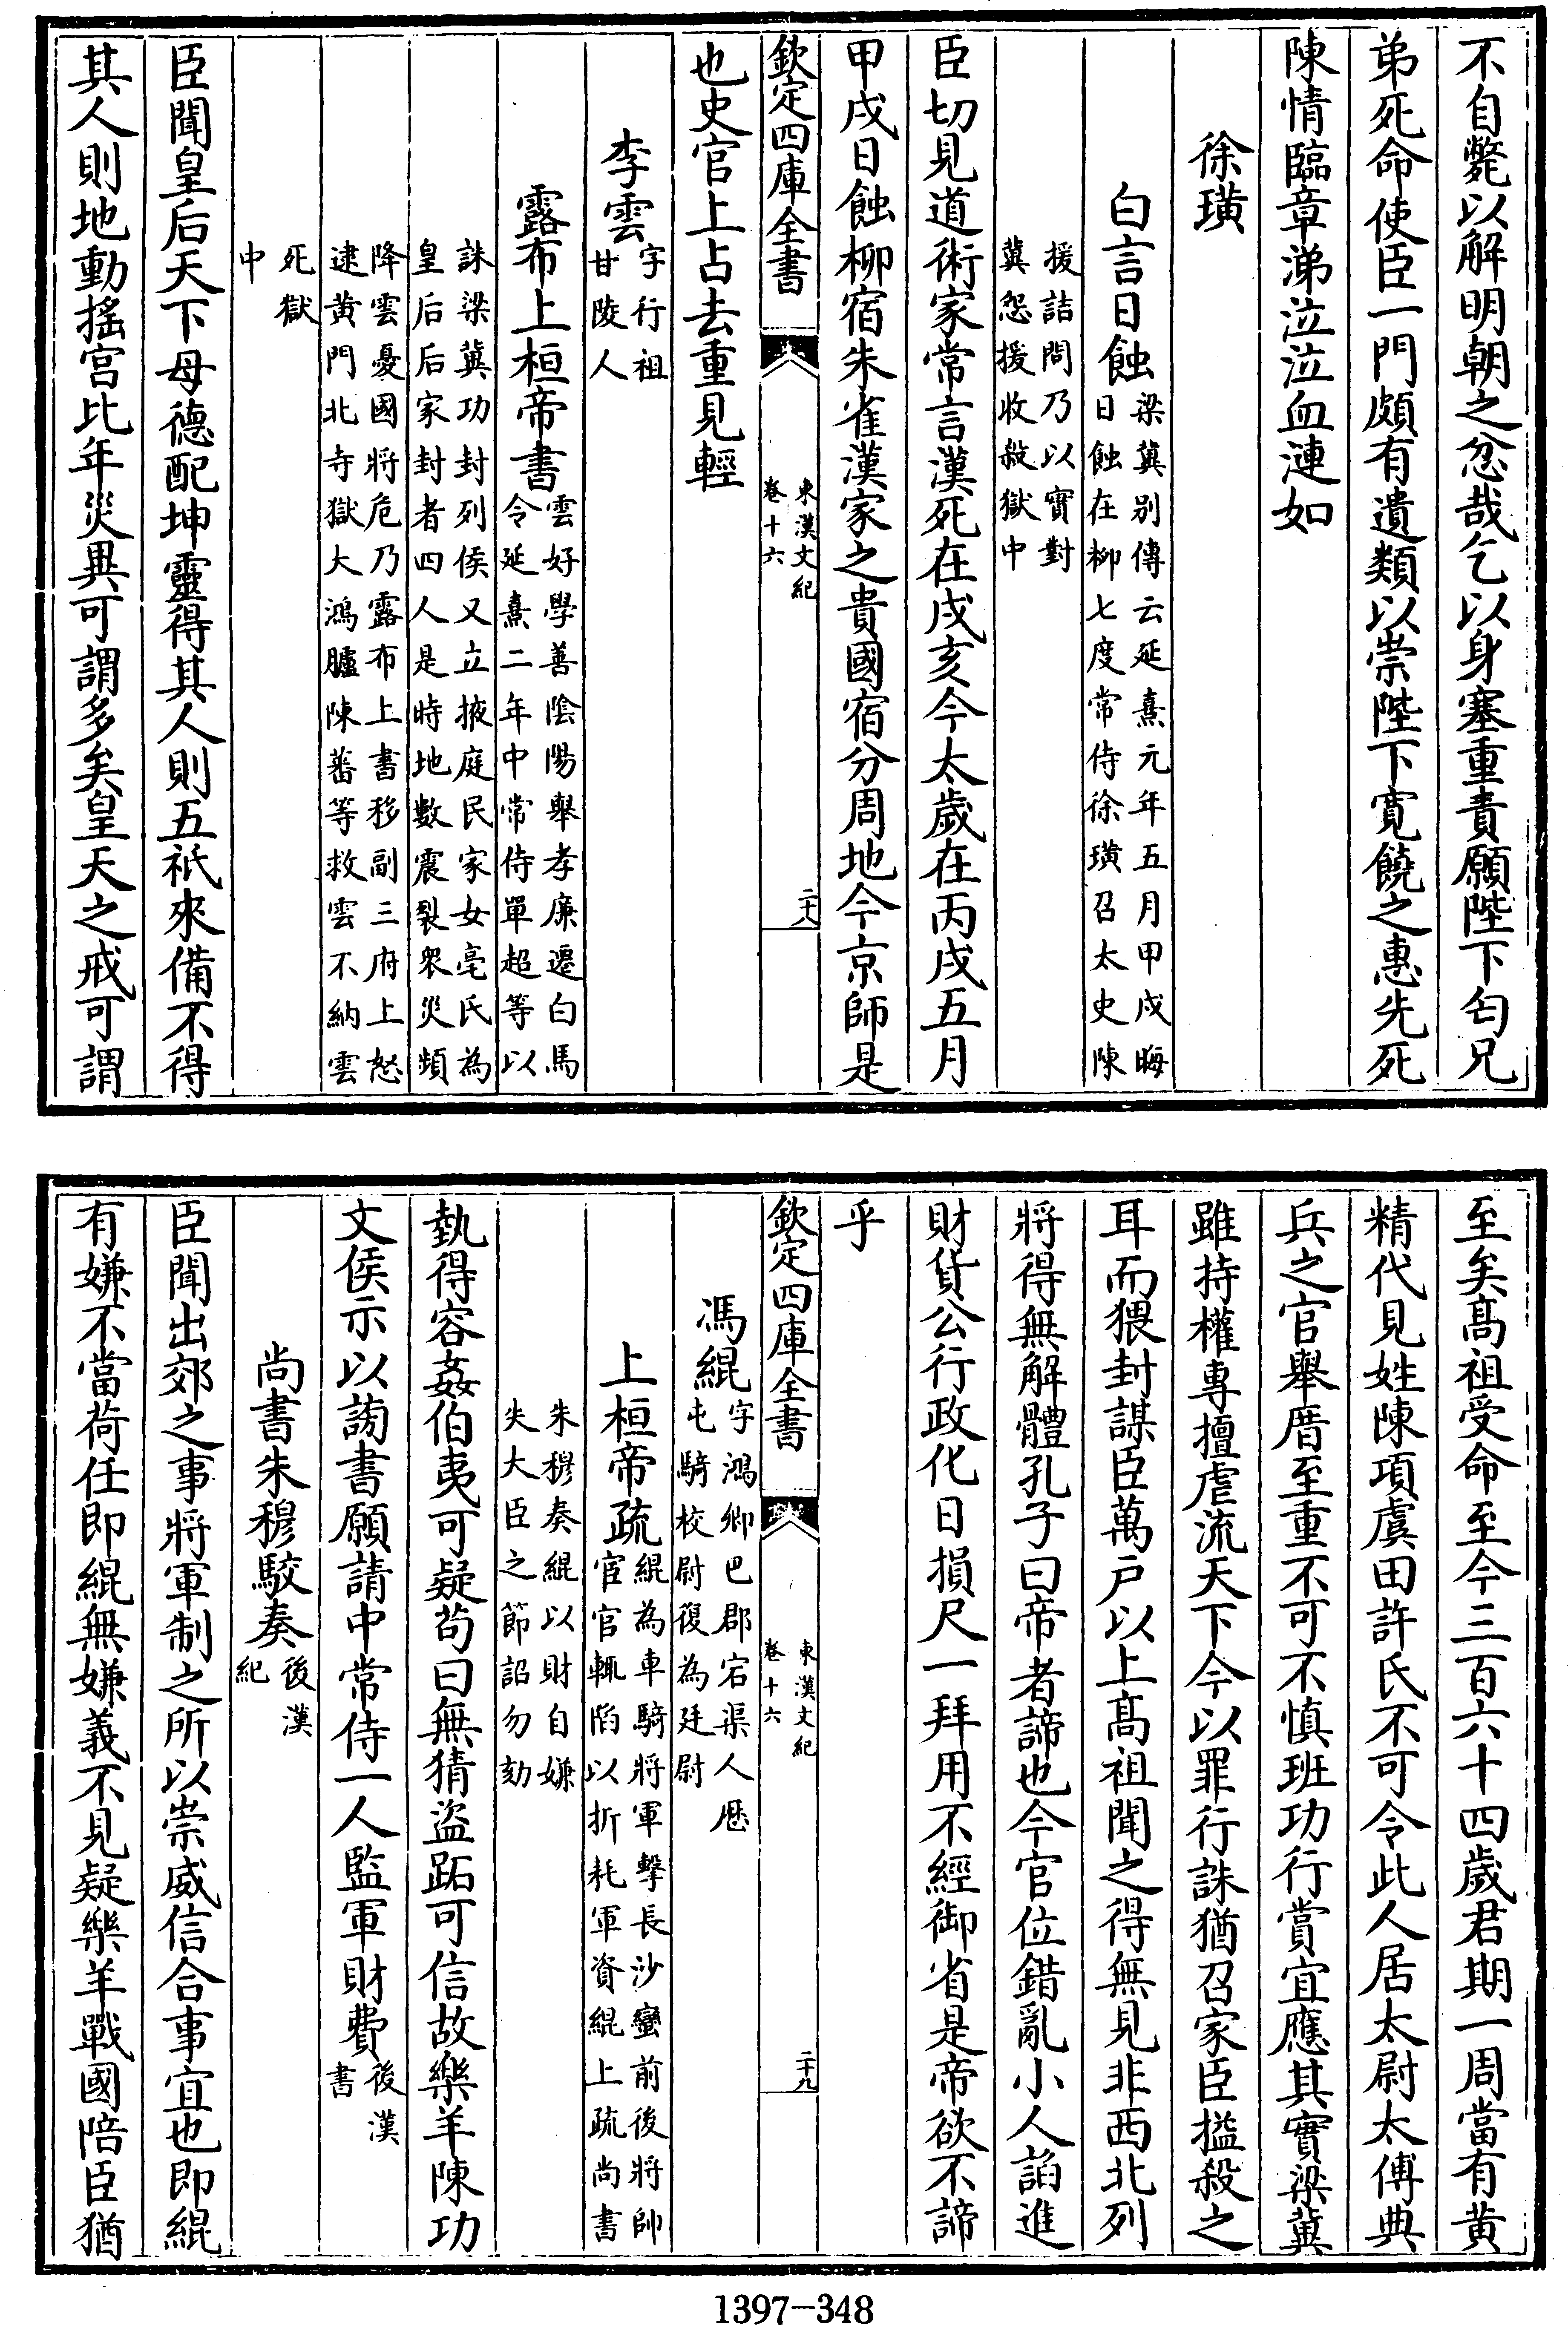 不自斃以解明朝之忿哉乞以身塞重責願陛下匄兄
弟死命使臣一門頗有遺類以崇陛下寛饒之惠先死
陳情臨章涕泣泣血漣如
徐璜
白言日蝕梁冀别傳云延熹元年五月甲戍晦
日蝕在栁七度常侍徐璜召太史陳
援詰問乃以實對
冀怨援收殺獄中
臣切見道術家常言漢死在戌亥今太歲在丙戌五月
甲戌日蝕栁宿朱雀漢家之貴國宿分周地今京師是
欽定四庫全書
東漢文紀
卷十六
二十八
也史官上占去重見輕
李雲字行祖
甘陵人
露布上桓帝書雲好學善陰陽舉孝廉遷白馬
令延熹二年中常侍單超等以
誅梁冀功封列侯又立掖庭民家女亳氏為
皇后后家封者四人是時地數震裂衆災頻
降雲憂國將危乃露布上書移副三府上怒
逮黄門北寺獄大鴻臚陳蕃等救雲不納雲
死獄
中
臣聞皇后天下母德配坤靈得其人則五祇來備不得
其人則地動揺宫比年災異可謂多矣皇天之戒可謂
至矣髙祖受命至今三百六十四歲君期一周當有黄
精代見姓陳項虞田許氏不可令此人居太尉太傅典
兵之官舉厝至重不可不慎班功行賞宜應其實梁冀
雖持權專擅虐流天下今以罪行誅猶召家臣搤殺之
耳而猥封謀臣萬户以上髙祖聞之得無見非西北列
將得無解體孔子曰帝者諦也今官位錯亂小人謟進
財貨公行政化日損尺一拜用不經御省是帝欲不諦
乎
欽定四庫全書
東漢文紀
卷十六
二十九
馮緄字鴻卿巴郡宕渠人厯
屯騎校尉復為廷尉
上桓帝疏緄為車騎將軍擊長沙蠻前後將帥
宦官輒䧟以折耗軍資緄上疏尚書
朱穆奏緄以財自嫌
失大臣之節詔勿劾
埶得容姦伯夷可疑茍曰無猜盗跖可信故樂羊陳功
文侯示以謗書願請中常侍一人監軍財費後漢
書
尚書朱穆駮奏後漢
紀
臣聞出郊之事將軍制之所以崇威信合事宜也即緄
有嫌不當荷任即緄無嫌義不見疑樂羊戰國陪臣猶
1397—348